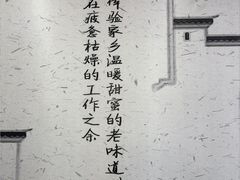 在疲惫枯燥的工作之余
体验家乡温暖甜蜜的老味道